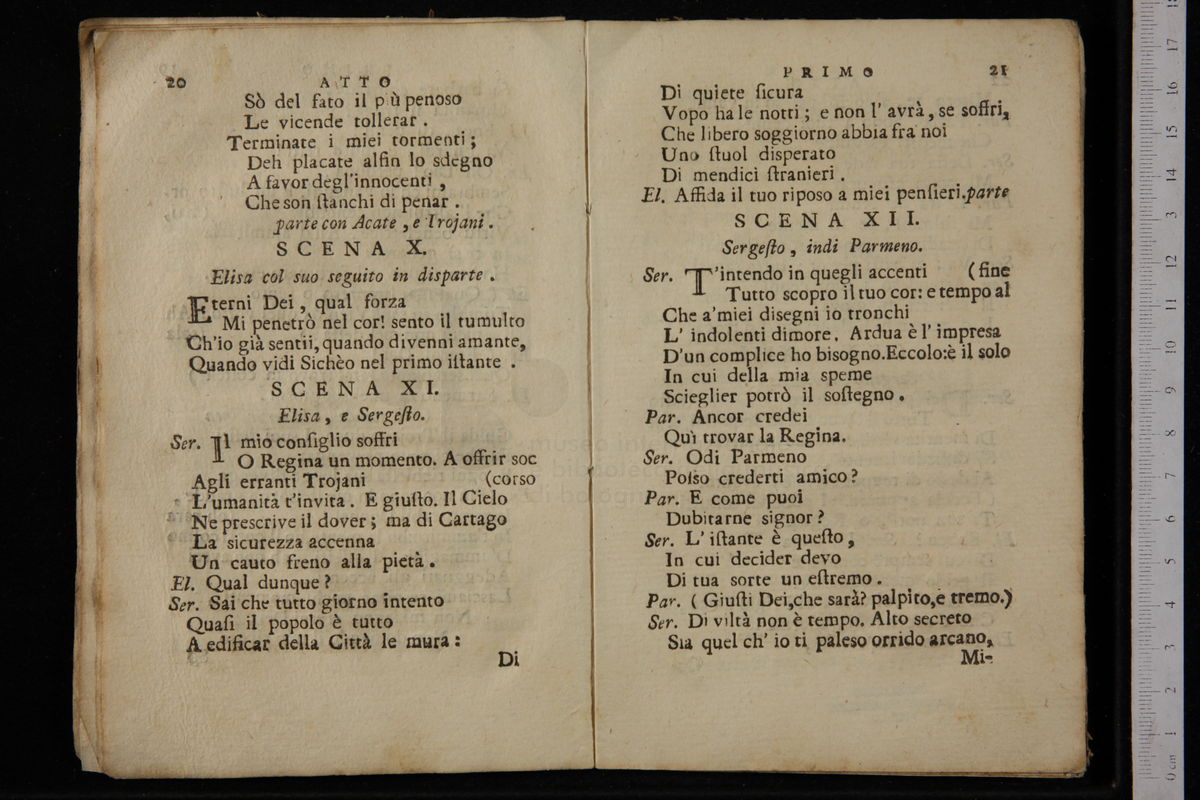 20 ATTO
Sò del fato il più penoso
Le vicende tollerar .
Terminate i miei tormenti ;
Deh placate alfin lo sdegno
A favor degl'innocenti ,
Che son ſtanchi di penar .
parte con Acate , e Trojani .
SCENA X.
Elisa col suo seguito in disparte .
Eterni Dei , qual forza
Mi penetrò nel cor! sento il tumulto
Ch'io già sentii, quando divenni amante,
Quando vidi Sichèo nel primo iſtante .
SCENA XI.
Elisa, e Sergeſto.
Ser. Il mio conſiglio soffri
O Regina un momento. A offrir soc
Agli erranti Trojani (corso
L'umanità t'invita . E giuſto. Il Cielo
Ne prescrive il dover ; ma di Cartago
La sicurezza accenna
Un cauto freno alla pietà .
El. Qual dunque ?
Ser. Sai che tutto giorno intento
Quaſi il popolo è tutto
A edificar della Città le mura :
Di
PRIMO 21
Di quiete ſicura
Vopo ha le notti ; e non l' avrà, se soffri,
Che libero soggiorno abbia fra noi
Uno ſtuol disperato
Di mendici ſtranieri .
El. Affida il tuo riposo a miei penſieri. parte
SCENA XII.
Sergeſto, indi Parmeno.
Ser. T'intendo in quegli accenti (fine
Tutto scopro il tuo cor: e tempo al
Che a'miei disegni io tronchi
L' indolenti dimore. Ardua è l' impresa
D'un complice ho bisogno. Eccolo: è il solo
In cui della mia speme
Scieglier potrò il soſtegno .
Par. Ancor credei
Quì trovar la Regina.
Ser. Odi Parmeno
Poſso crederti amico ?
Par. E come puoi
Dubitarne signor ?
Ser. L' iſtante è queſto ,
In cui decider devo
Di tua sorte un eſtremo .
Par. ( Giuſti Dei, che sarà? palpito, e tremo.)
Ser. Di viltà non è tempo. Alto secreto
Sia quel ch' io ti paleso orrido arcano,
Mi-